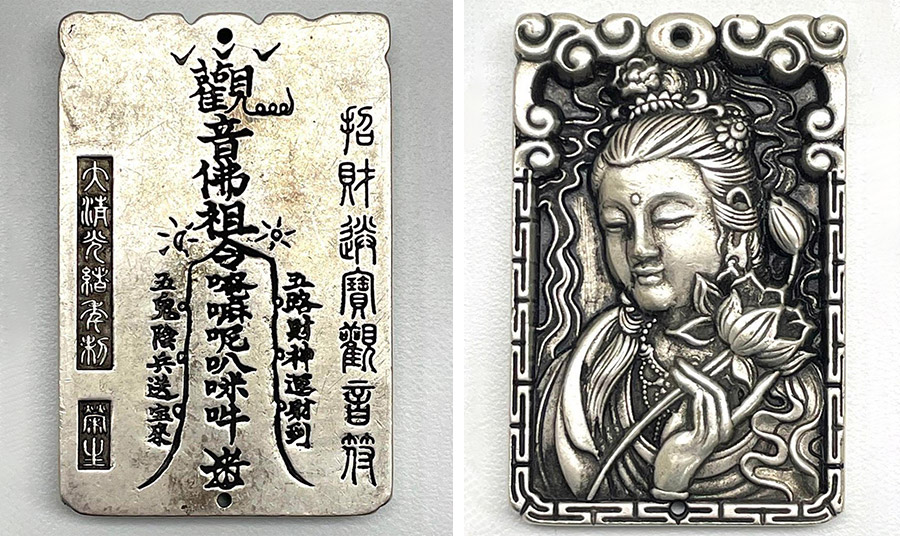 招財進寶觀音符
五路財神運財到
觀音佛祖令嗡嘛呢叭咪吽
五鬼陰兵送宝來
大清光緒年制